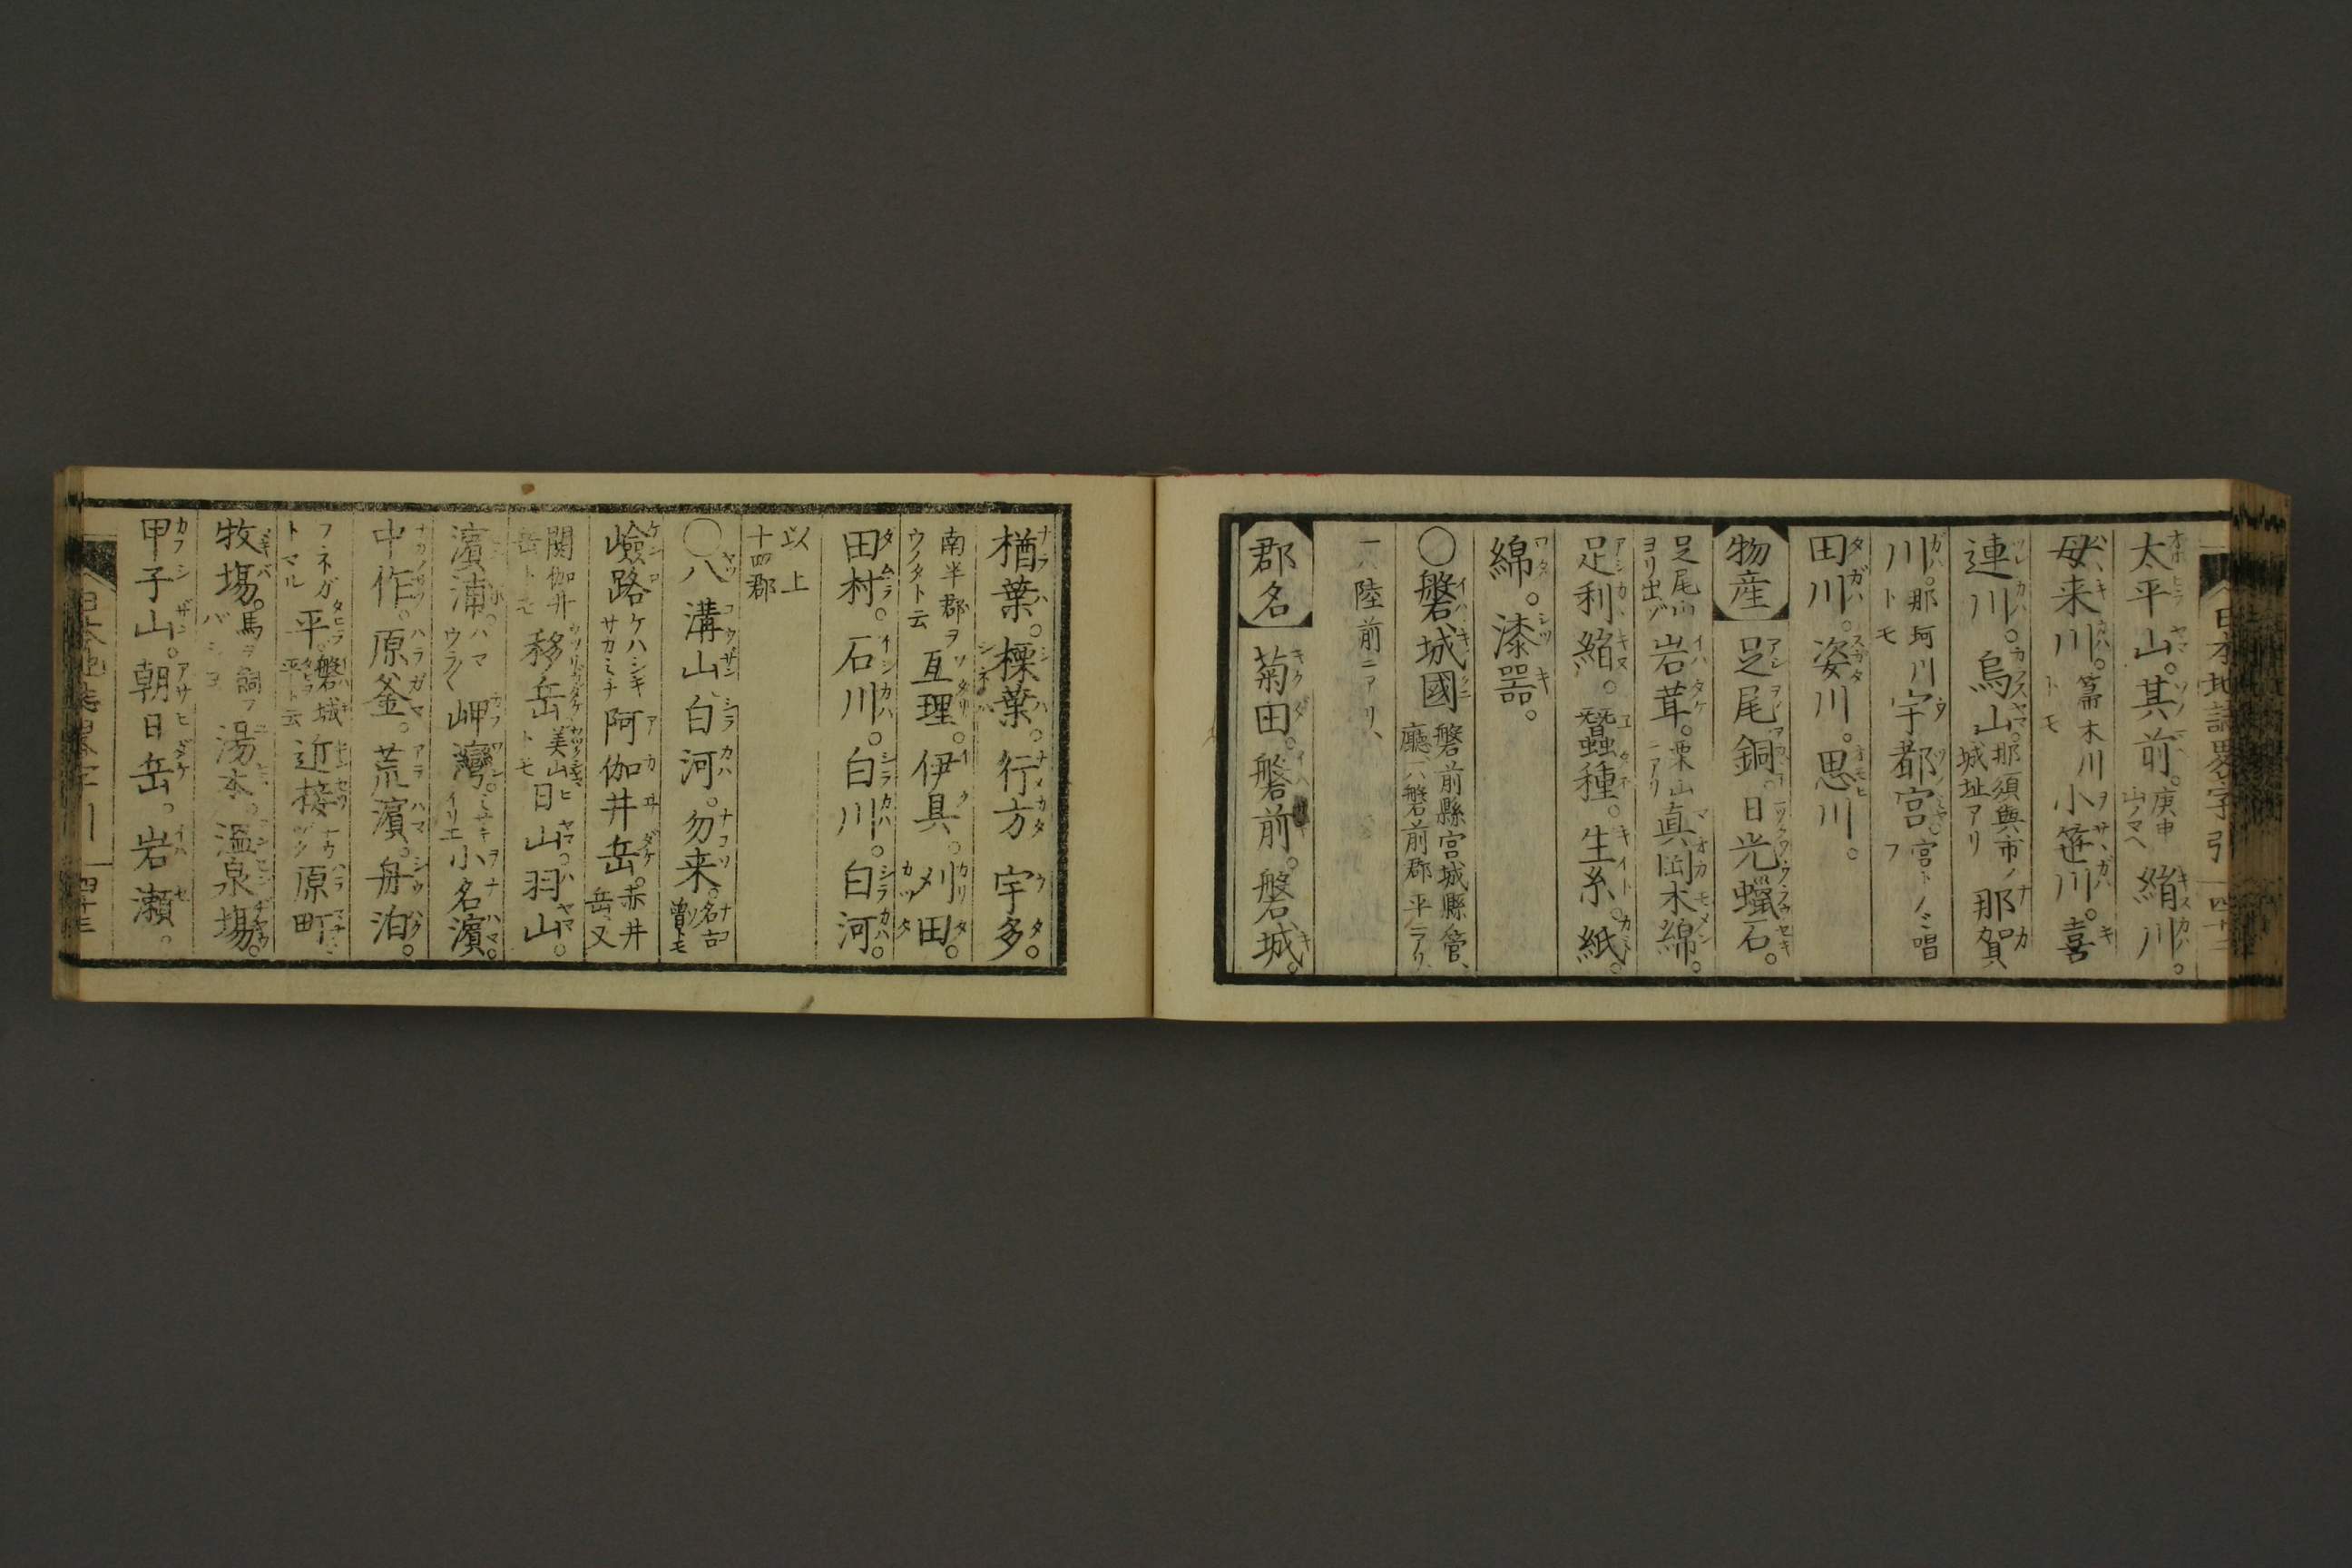 太平山。其前。庚申山ノマヘ 絹川。
母来川。箒木川トモ 小笹川。喜
連川。烏山。那須與市ノ城址アリ 那賀
川。那珂川トモ 宇都宮。宮トノミ唱フ
田川。姿川。思川。
物産 足尾銅。日光蝋石。
足尾山ヨリ出ヅ 岩茸。栗山ニアリ 真岡木綿。
足利絹。蠶種。生糸。紙。
綿。漆器。
〇磐城國 磐前縣宮城縣管、廳ハ磐前郡平ニアリ、
一ハ陸前ニアリ、
郡名 菊田。磐前。磐城。
楢葉。標葉。行方 宇多。
南半郡ヲウノタト云 亘理。伊具。刈田。
田村。石川。白川。白河。
以上十四郡
〇八溝山 白河。勿来。名古曽トモ
嶮路 ケハシキサカミチ 阿伽井岳。赤井岳又
閼伽井岳トモ 移岳。美山トモ 日山。羽山。
濱浦。ハマウラ〱 岬灣。ミサキイリエ 小名濱。
中作。原釜。荒濱。舟泊。
フネガトマル 平。磐城平ト云 近接 原町
牧場。馬ヲ飼フバシヨ 湯本。温泉場。
甲子山。朝日岳。岩瀬。